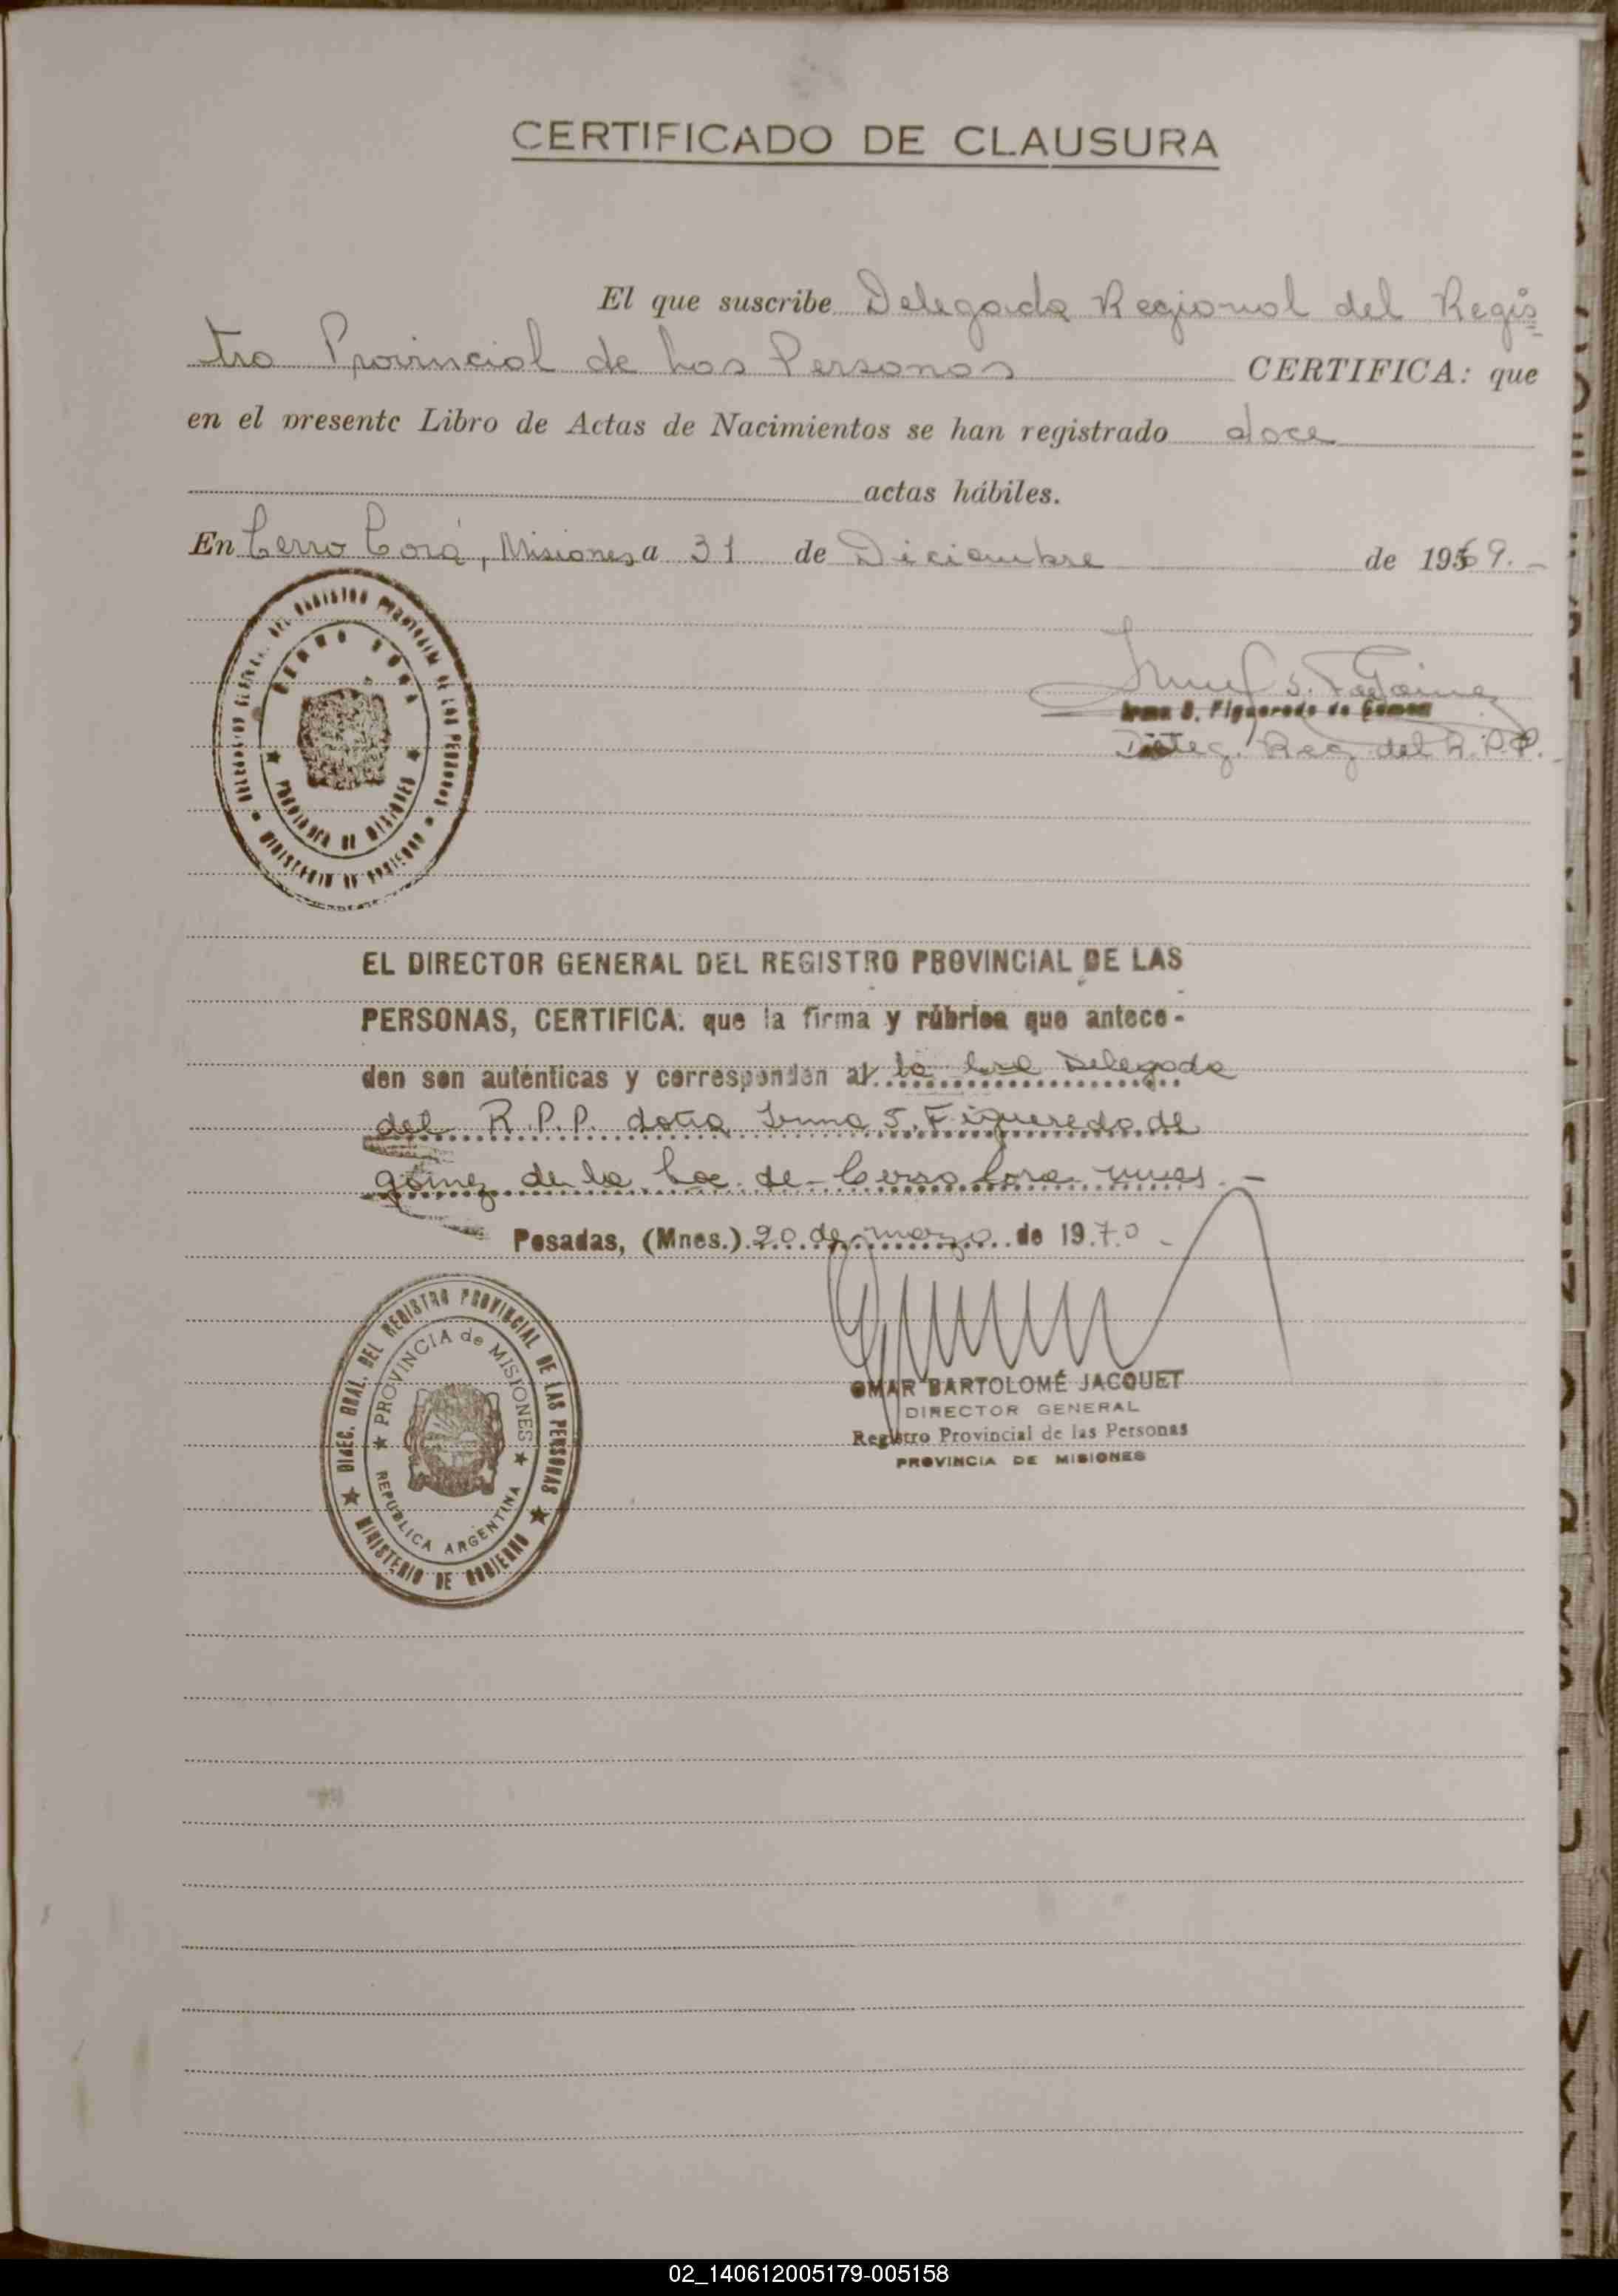 CERTIFICADO DE CLAUSURA
El que suscribe Delegada Regional del Regis
tro Provincial de Las Personas CERTIFICA: que
en el presente Libro de Actas de Nacimientos se han registrado doce
actas hábiles.
En Cerro Corá, Misiones a 31 de Diciembre de 1969.-
Irma S. Figueredo de Gomez
Deleg. Reg. del R.P.P.
DELEGACION GENERAL DEL REGISTRO PROVINCIAL DE LAS PERSONAS
CERRO CORA
PROVINCIA DE MISIONES
MINISTERIO DE GOBIERNO
EL DIRECTOR GENERAL DEL REGISTRO PROVINCIAL DE LAS
PERSONAS, CERTIFICA. que la firma y rúbrica que antece-
den son auténticas y corresponden al la Delegada
del R.P.P. doña Irma S. Figueredo de
gómez de la Loc. de Cerro Cora mnes.-
Posadas, (Mnes.) 20 de marzo de 1970-
DIREC. GRAL. DEL REGISTRO PROVINCIAL DE LAS PERSONAS
PROVINCIA de MISIONES
REPUBLICA ARGENTINA
MINISTERIO DE GOBIERNO
OMAR BARTOLOMÉ JACQUET
DIRECTOR GENERAL
Registro Provincial de las Personas
PROVINCIA DE MISIONES
02_140612005179-005158